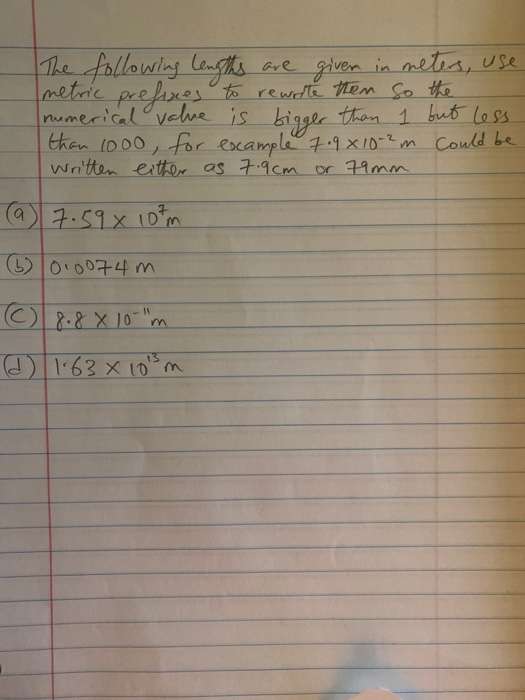 The following lengths are given in meters, use
metric prefixes to rewrite them so the
numerical value is bigger than 1 but less
than 1000, for example 7.9 × 10⁻² m could be
written either as 7.9cm or 79mm
(a) 7.59 × 10⁷m
(b) 0.0074 m
(c) 8.8 × 10⁻¹¹m
(d) 1.63 × 10¹³ m